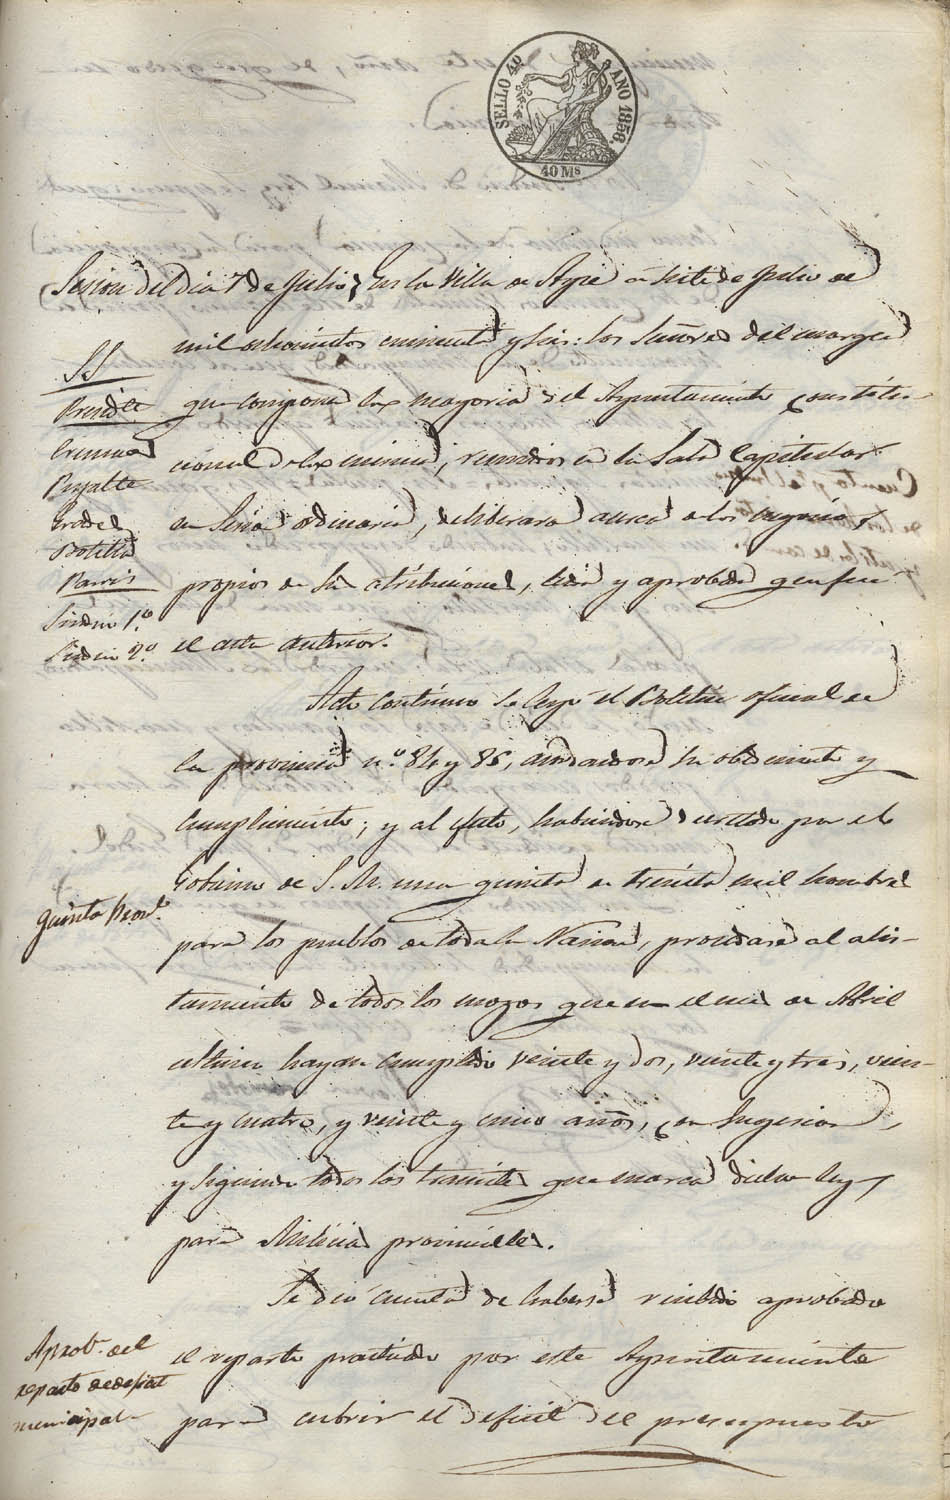 SELLO 4º AÑO 1856.
40 Ms
Sesion del dia 7 de Julio
En la Villa de Ayce a siete de Julio de
mil ochocientos cincuenta y seis: los Señores del margen
que componen la mayoria del Ayuntamiento constitu-
cional de la misma, reunidos en la Sala Capitular
en Sesion ordinaria, deliberaron acerca de los negocios
propios de sus atribuciones, leida y aprobada que fue
el acta anterior.
SS
Presidte
Peralte
Botella
Sindico 1º
Sindico 2º
Acto continuo se leyó el Boletin oficial de
la provincia nº 84 y 85, acordandose su obediencia y
cumplimiento; y al efecto, habiendose decretado por el
Gobierno de S. M. una quinta de treinta mil hombres
para los pueblos de toda la Nacion, procedase al alis-
tamiento de todos los mozos que en el mes de Abril
ultimo hayan cumplido veinte y dos, veinte y tres, vein-
te y cuatro, y veinte y cinco años, con sugecion
y siguiendo todos los tramites que marca dicha ley
para Milicias provinciales.
Quinta Provl.
Se dió cuenta de haberse recibido aprobado
el reparto practicado por este Ayuntamiento
para cubrir el deficit del presupuesto
Aprobn. del
reparto de deficit
municipal